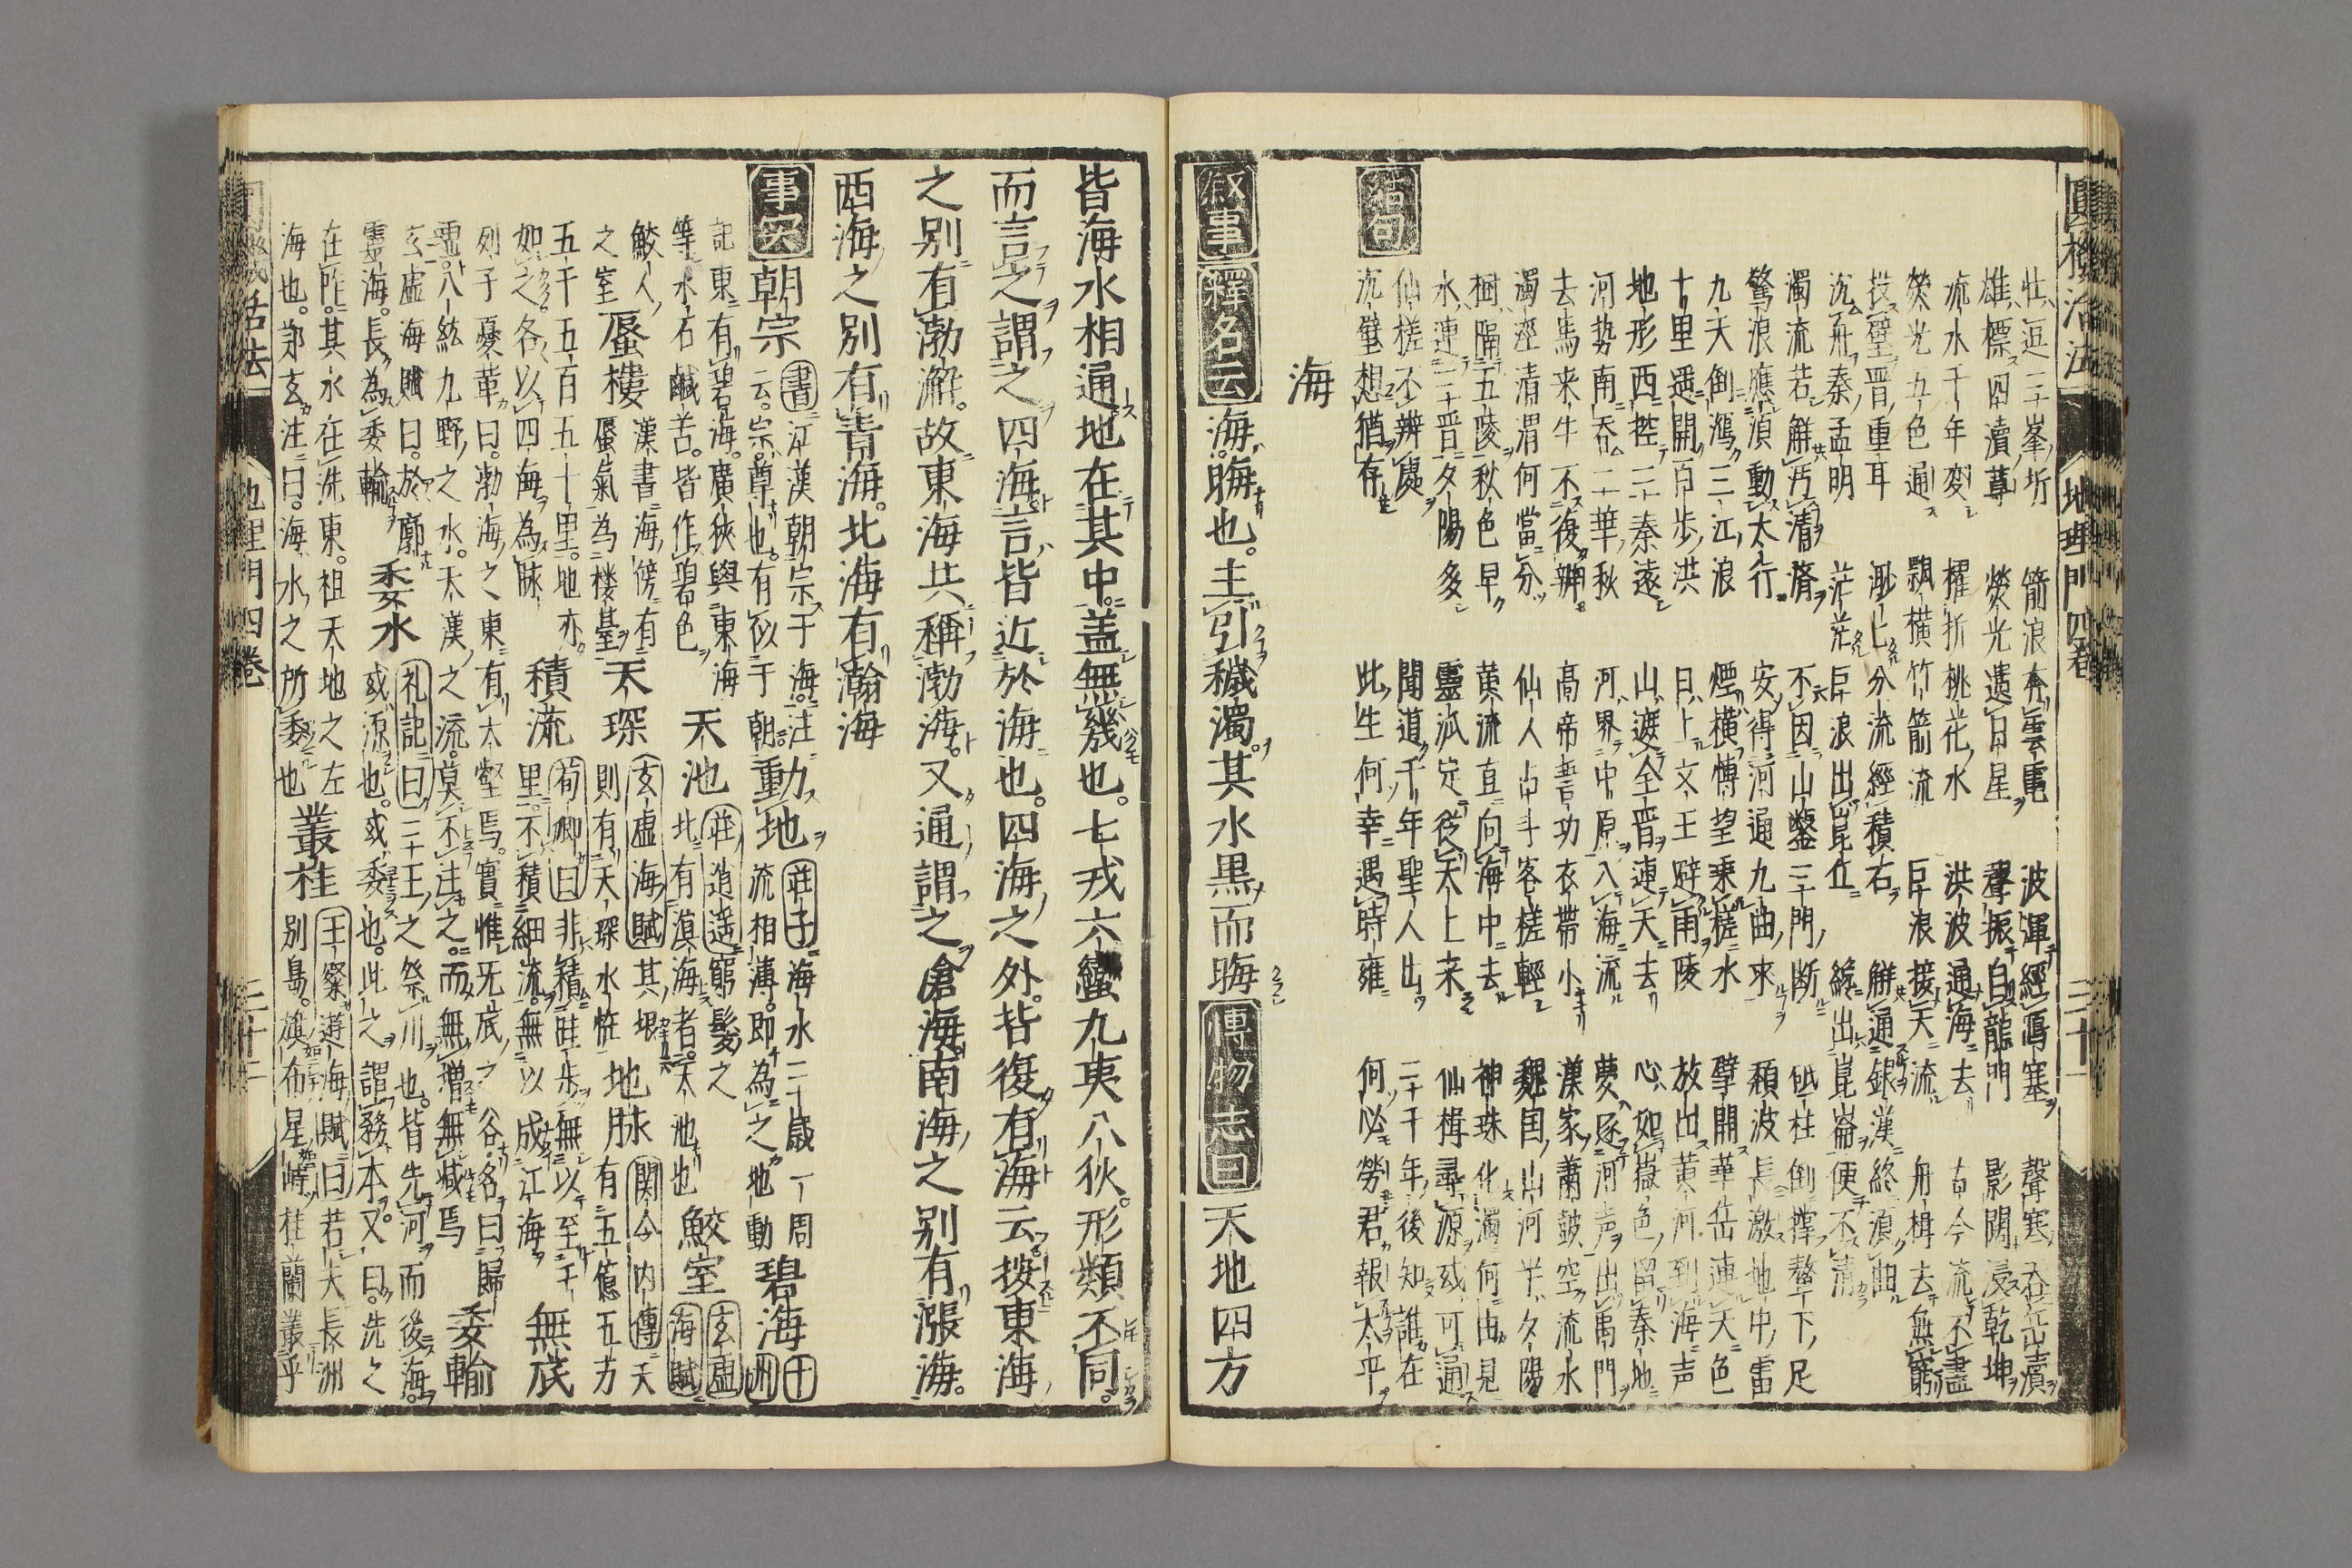 圓機活法 地理門四卷 三十一
壮逗二峯坼 箭浪奔雲電 波渾經寫塞 聲寒吞岳瀆
雄標四瀆尊 熒光遺日星 聲振自龍門 影闊浸乾坤
流水千年変 櫂折桃花水 洪波通海去 古今流不盡
熒光五色通 飄横竹箭流 巨浪接天流 舟楫去無窮
投璧晋重耳 渺渺分流經積石 觧通銀漢終湏曲
沉舟秦孟明 茫茫巨浪出崑丘 縱出崑崙便不清
濁流若觧汚清濟 不因山鑿三門断 砥柱倒撑鰲下足
驚浪應湏動太行 安得河通九曲來 頽波長激地中雷
九天倒瀉三江浪 煙横愽望乘槎水 擘開華岳連天色
十里遥開百歩洪 日上文王避雨陵 放出黄河到海声
地形西控二秦遠 山遮全晋連天去 心如嶽色留秦地
河势南呑二華秋 河界中原入海流 夢逐河声出禹門
去馬来牛不復辨 高帝誓功衣帯小 漢家蕭鼓空流水
濁涇清渭何當分 仙人占斗客槎輕 魏国山河半夕陽
樹隔五陵秋色早 黄流直向海中去 神珠化濁何由見
水連二晋夕陽多 靈派定從天上来 仙楫尋源或可通
仙槎不辨處 聞道千年聖人出 二千年後知誰在
沉璧想猶存 此生何幸遇時雍 何必勞君報太平
活句
海
叙事 釋名云海晦也。主引穢濁。其水黒而晦 博物志曰 天地四方
皆海水相通地在其中。盖無幾也。七戎六蠻九夷八狄。形類不同。
而言之謂之四海。言皆近於海也。四海之外。皆復有海云按東海
之別有渤澥。故東海共稱渤海。又通謂之滄海。南海之别有漲海。
西海之別有青海。北海有瀚海
事実 朝宗 書江漢朝宗于海。注云。宗尊也。有似于朝。 動地 莊子海水三歳一周流相薄。即為之地動 碧海 十洲
記東有碧海。廣狭與東海等。水石鹹苦。皆作碧色 天池 莊逍遥窮髪之北有溟海者。天池也 鮫室 玄虚海賦
鮫人之室 蜃樓 漢書海傍有蜃氣為楼臺 天琛 玄虚海賦其垠則有天琛水恠 地脉 関令内傳天有五億五万
五千五百五十里。地亦如之各以四海為脉 積流 荀卿曰非積跬歩無以至千里。不積細流。無以成江海 無底
列子憂革曰。渤海之東有大壑焉。實惟无底之谷名曰歸墟。八紘九野之水。天漢之流。莫不注之。而無増無减焉 委輸
玄虚海賦曰。於廓靈海。長為委輸 委水 礼記曰三王之祭川也。皆先河而後海。或源也。或委也。此之謂務本。又曰。洗之
在阼。其水在洗東。祖天地之左海也。郑玄注曰。海水之所委也 叢桂 王粲遊海賦曰若夫長洲別島。旗布星峙桂蘭叢乎
圓機活法 地理門四卷 三十二